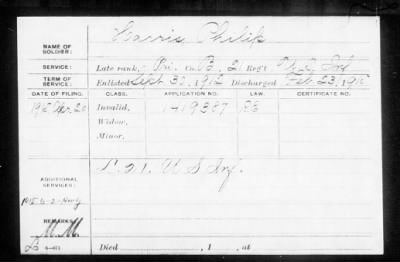 NAME OF SOLDIER: Harris, Philip
SERVICE: Late rank, Pri. Co. B, 2 Reg't Inf
TERM OF SERVICE: Enlisted Sept 30, 1912 Discharged Feb. 23, 191
DATE OF FILING. CLASS. APPLICATION NO. LAW. CERTIFICATE NO.
Invalid, 1419387
Widow,
Minor,
ADDITIONAL SERVICES: L. 21. U S Inf.
REMARKS:
M.M.
Died , 1 , at